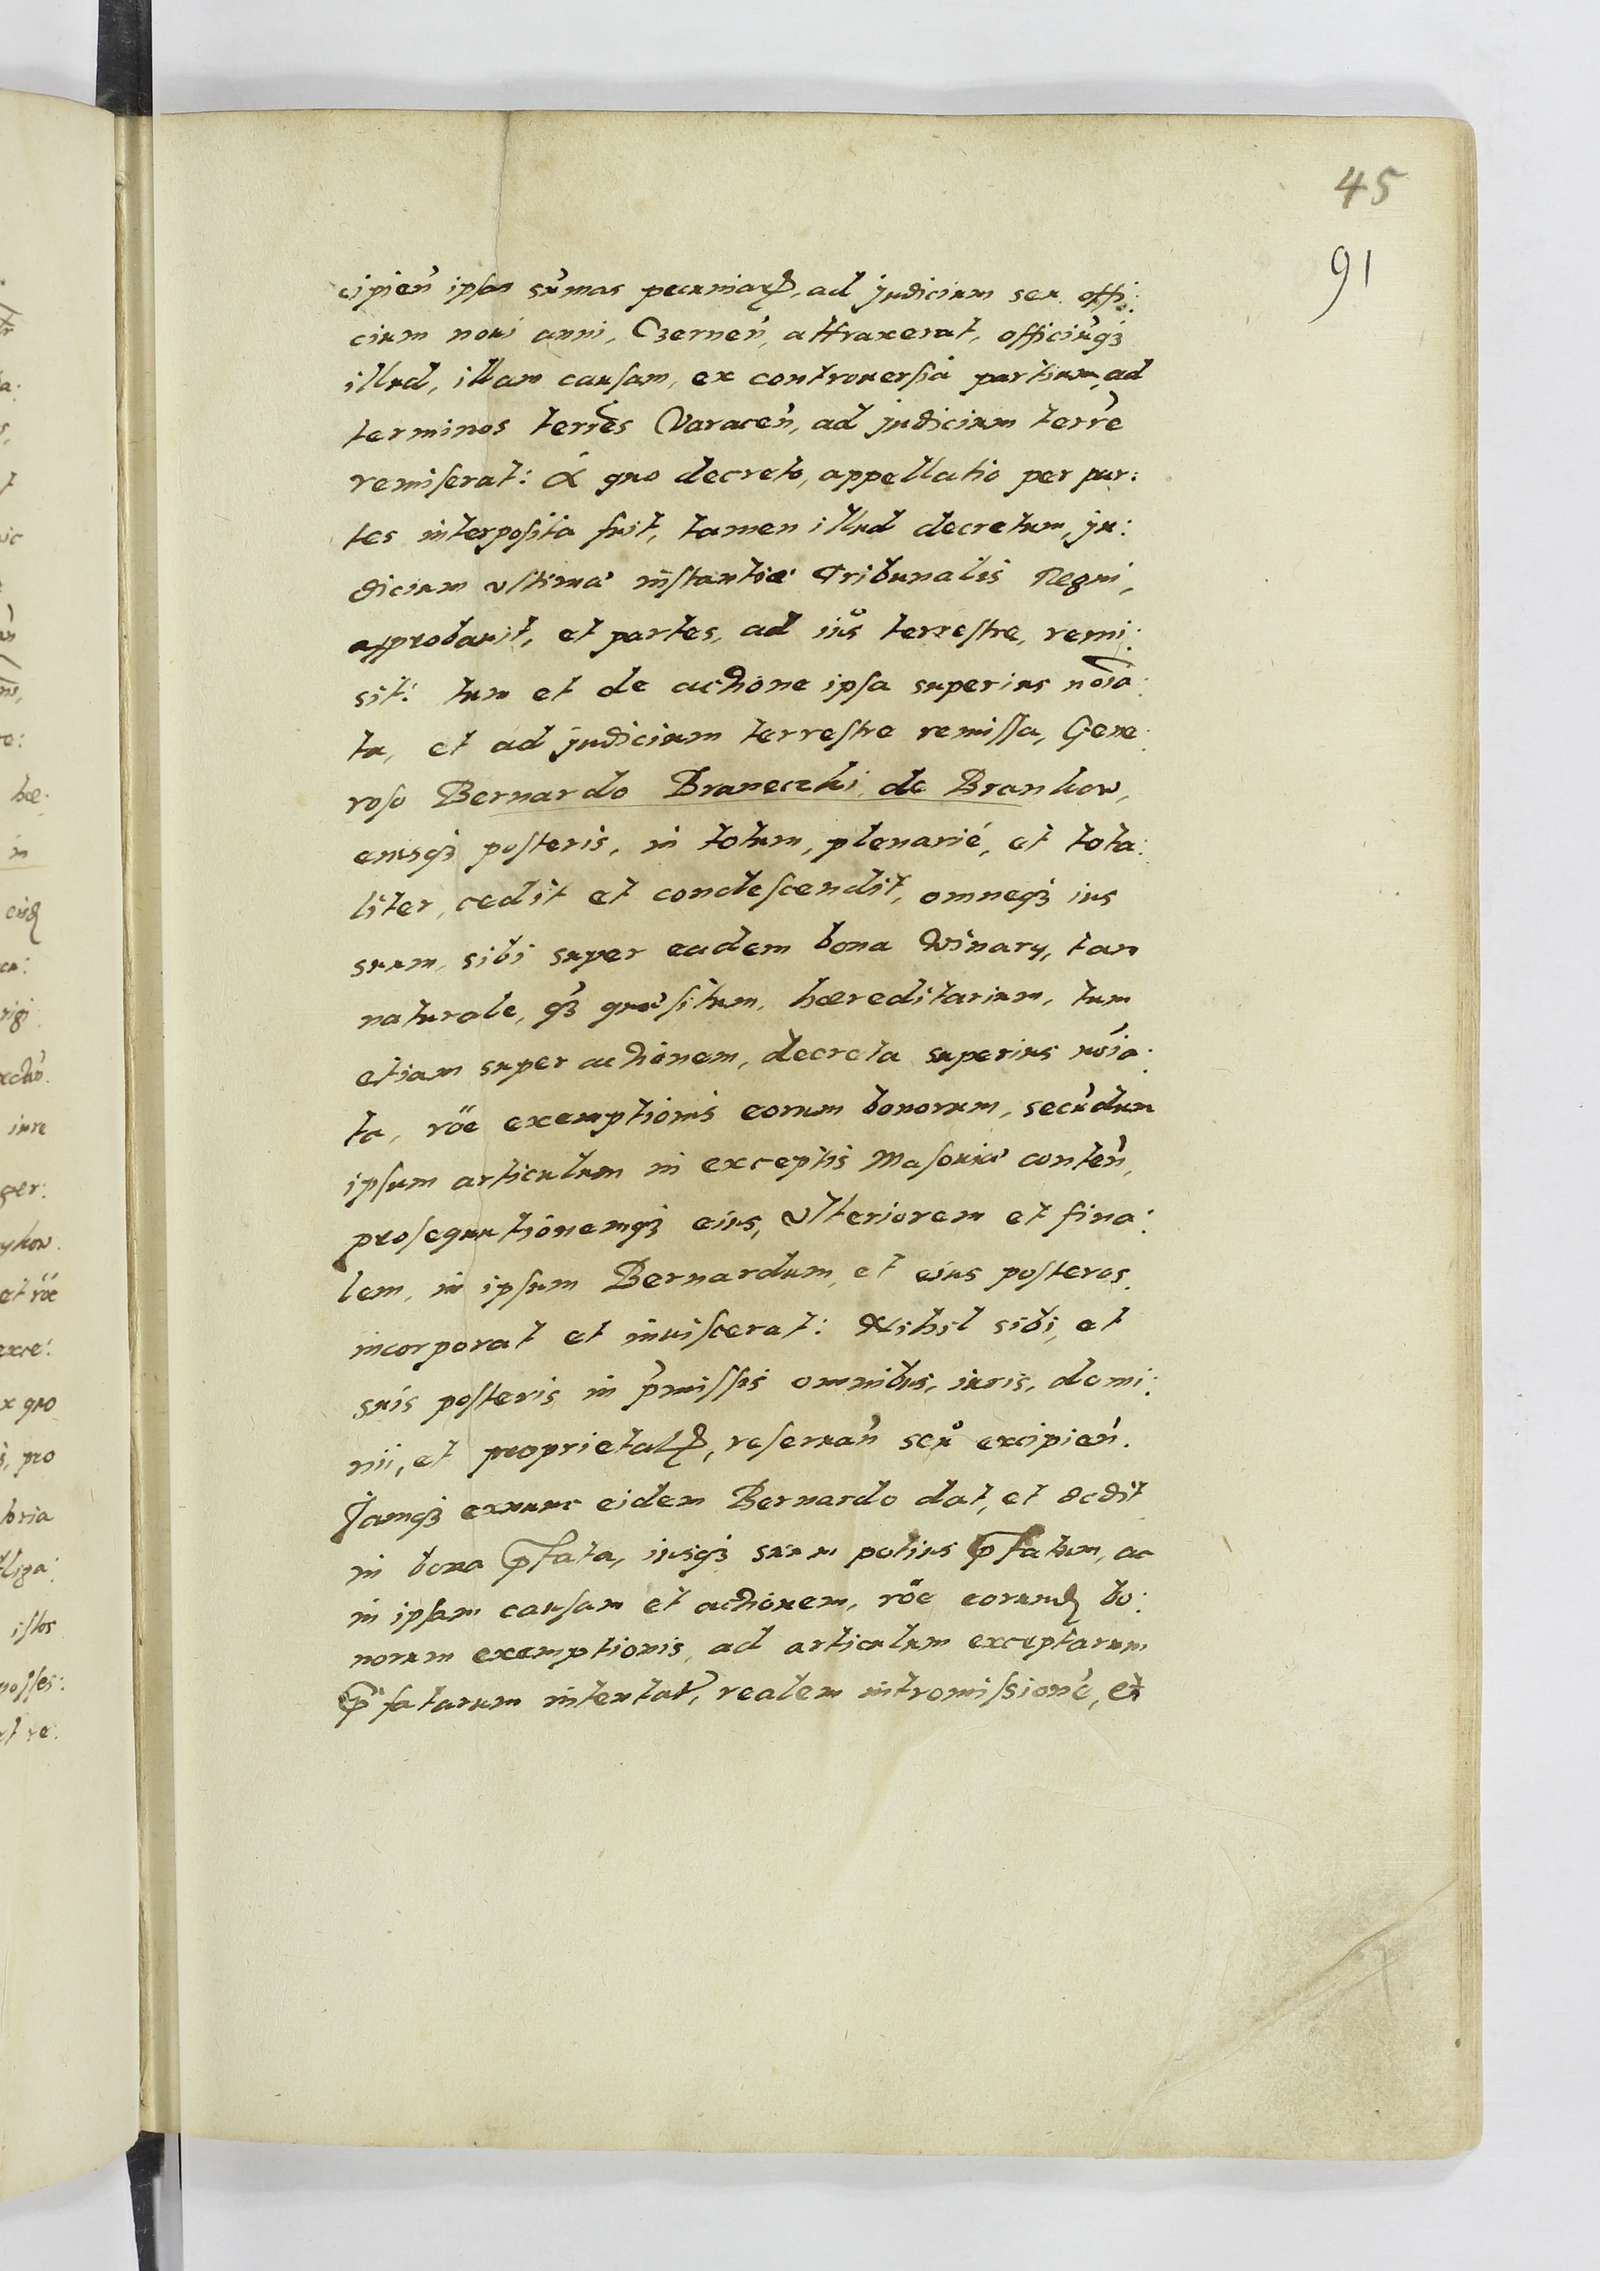 45
91
cipien̄ ipsas sum̄as pecuniaꝝ, ad judicium seu offi:
cium novi anni, Czernen̄, attraxerat, officiūqꝫ
illud, illam causam, ex controuersia partium, ad
terminos terrēs Varacen̄, ad judicium terrē
remiserat: à quo decreto, appellatio per par:
tes interposita fuit, tamen illud decretum, ju:
dicium vltimæ instantiæ Tribunalis Regni,
approbauit, et partes, ad ius terrestre, remi:
sit: tum et de actione ipsa superius noīa:
ta, et ad judicium terrestre remissa, Gene:
roso Bernardo Branecki de Brankow,
eiusqꝫ posteris, in totum, plenarié, et tota:
liter, cedit et condescendit, omneqꝫ ius
suum, sibi super eadem bona Winary, tam
naturale, qꝫ quæsitum, hæreditarium, tum
etiam super actionem, decreta superius noīa:
ta, rōe exemptionis eorum bonorum, secūdum
ipsum articulum in exceptis Masouiæ conten̄,
prosequutionemqꝫ eius, vlteriorem et fina:
lem, in ipsum Bernardum, et eius posteros
incorporat et inuiscerat: Nihil sibi, et
suis posteris in p̄missis omnibus, iuris, domi:
nii, et proprietatꝭ, reseruan̄ seu excipien̄.
Jamqꝫ exnunc eidem Bernardo dat, et dedit
in bona p̄fata, iusqꝫ suum potius p̄fatum, ac
in ipsam causam et actionem, rōe eorundꝫ bo:
norum exemptionis, ad articulum exceptarum
p̄fatarum intentat, realem intromissionē, et